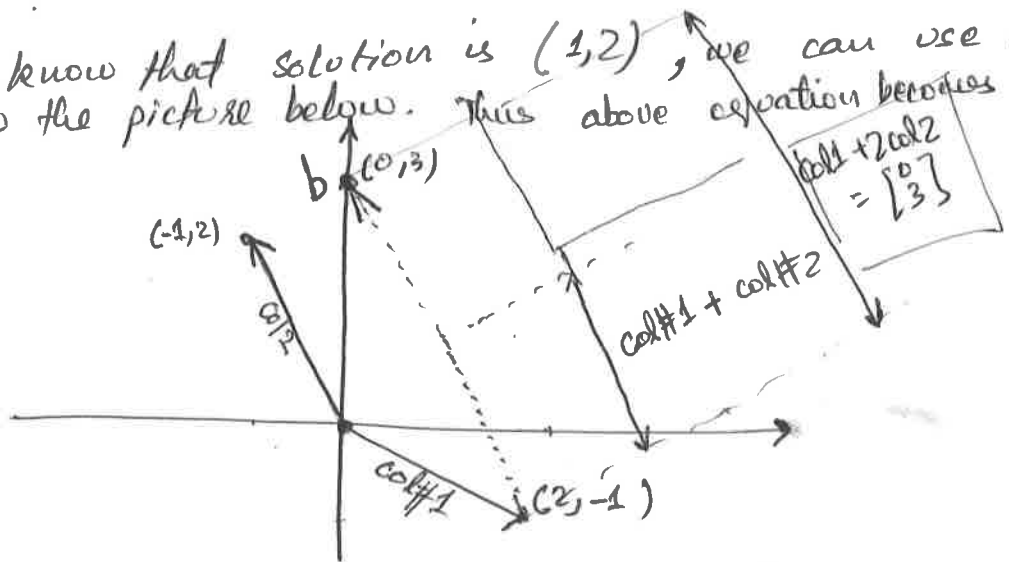 know that solution is (1,2), we can use
the picture below. Thus above equation becomes
b (0,3)
col1 + 2col2
= [0 3]
(-1,2)
col2
col#1 + col#2
col#1
(2,-1)